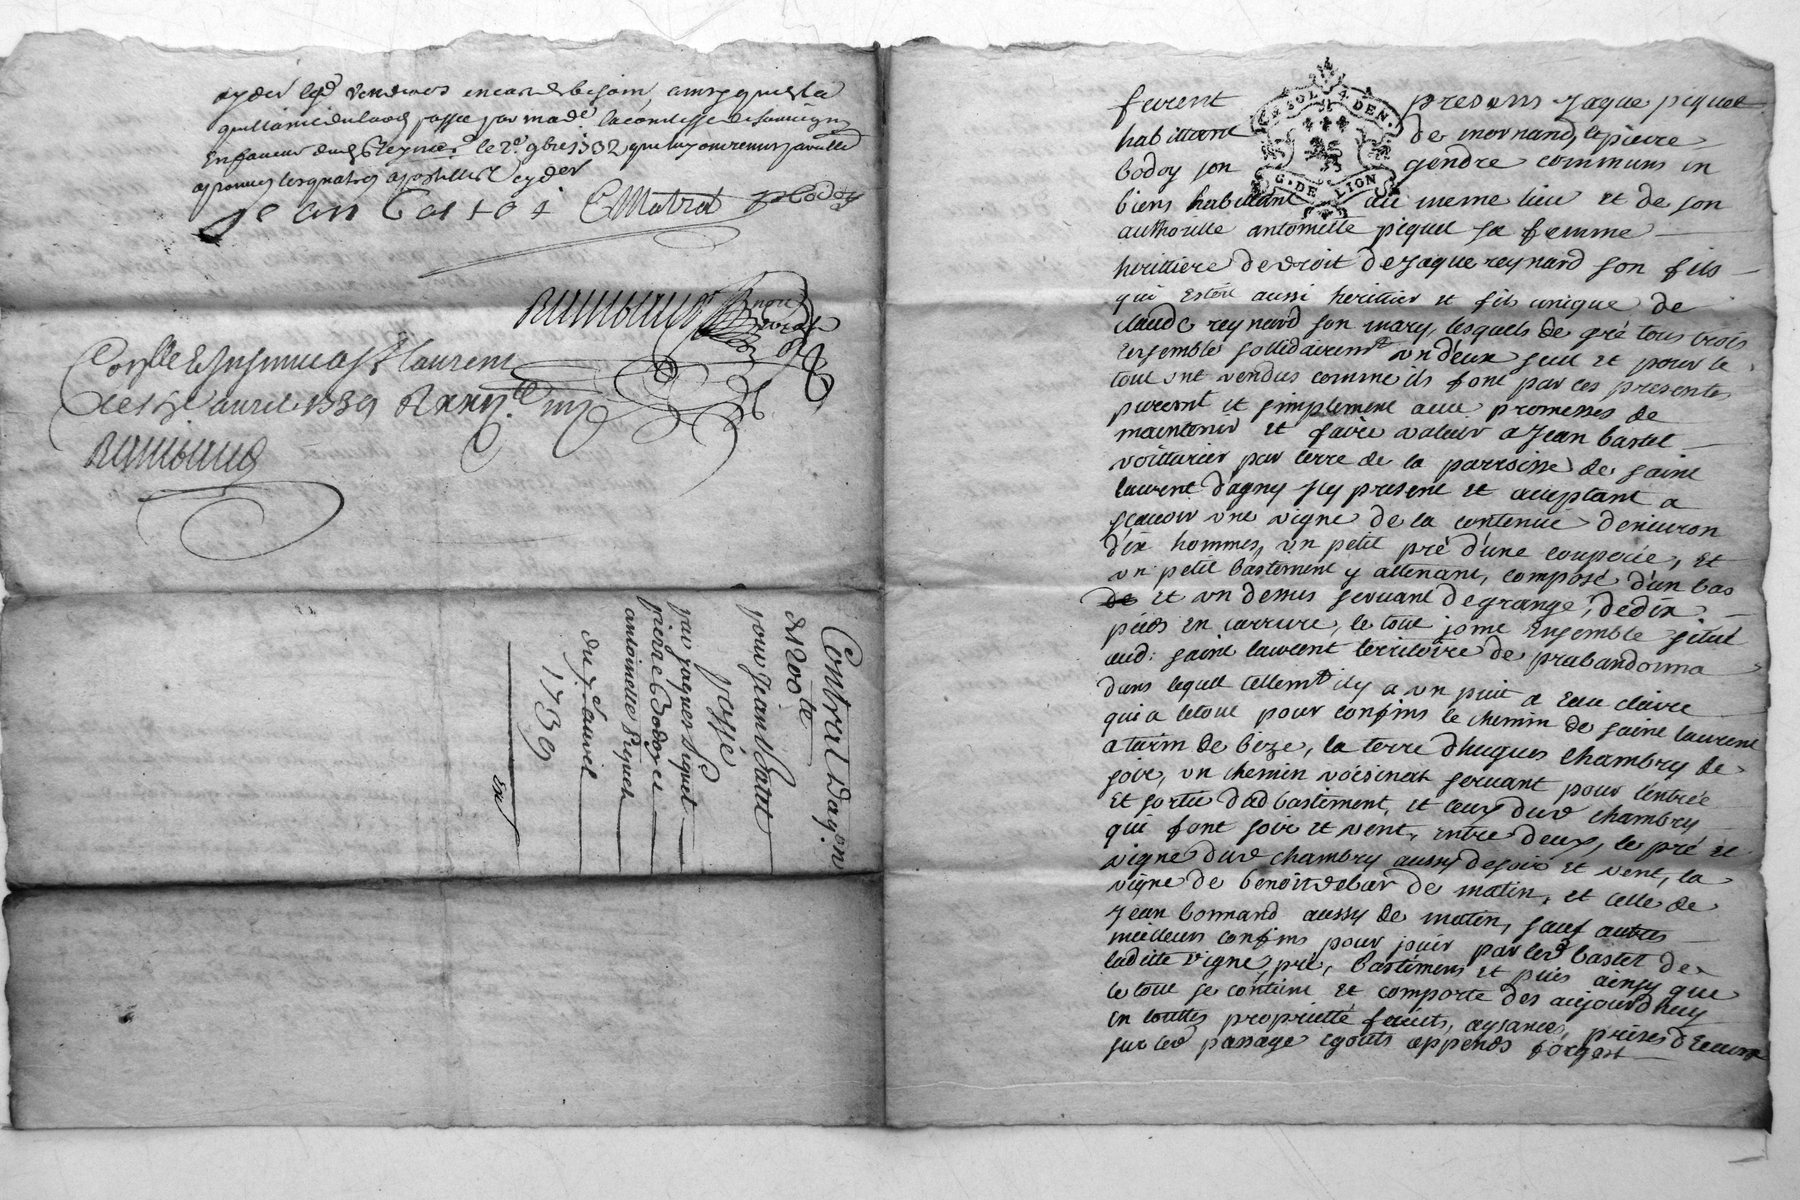 aydes lesd vendeurs en cas de besoin, ainsy que la
quittance du laod passée par made la comtesse de
en faveur dud Reynard le 2e 9bre 1732, que
jean bastet CMatrat pbodoy
Raimbaud
Conlle et Insinué a St laurent
le avril 1739
Raimbaud
Contrat d'acq.on
de 1200 lt
pour Jean Bastet
passé
par jaques Piquet
pierre Bodoy et
antoinette Piquet
du 7e avril
1739
SOLS 4 DEN.
G. DE LION
furent presens Jaque piquet
habitant de mornand, et pierre
bodoy son gendre communs in
biens habitant au meme lieu et de son
authorité antoinette piquet sa femme
heritiere de droit de Jaque reynard son fils
qui estoit aussi heritier et fils unique de
claude reynard son mary, lesquels de gré tous trois
ensemble sollidairemt un d'eux seul et pour le
tout ont vendus comme ils font par ces presentes
puremt et simplement avec promesses de
maintenir et faire valoir a Jean bastet
voitturier par terre de la parroisse de saint
laurent d'agny icy present et acceptant a
scavoir une vigne de la contenue d'environ
dix hommes, un petit pré d'une couperée, et
un petit bastement y attenant, composé d'un bas
de et un dessus servant de grange, de dix
pieds en carrure, le tout joint ensemble situé
aud: saint laurent territoire de prabandonna
dans lequel tellemt il y a un puit a eau claire
qui a letout pour confins le chemin de saint laurent
a turin de bize, la terre d'hugues chambry de
soir, un chemin voisinat servant pour l'entrée
et sortie dud bastement, et ceux dud chambry
qui font soir et vent, entre deux, le pré et
vigne dud chambry aussy de soir et vent, la
vigne de benoit debar de matin, et celle de
Jean bonnand aussy de matin, sauf autres
meilleurs confins pour jouir par led bastet de
ladite vigne, pré, bastiment et puis ainsy que
le tout se contient et comporte des aujourdhuy
en touttes proprietté fruits, aysances, prises d'eaux
sur led passage egouts appends